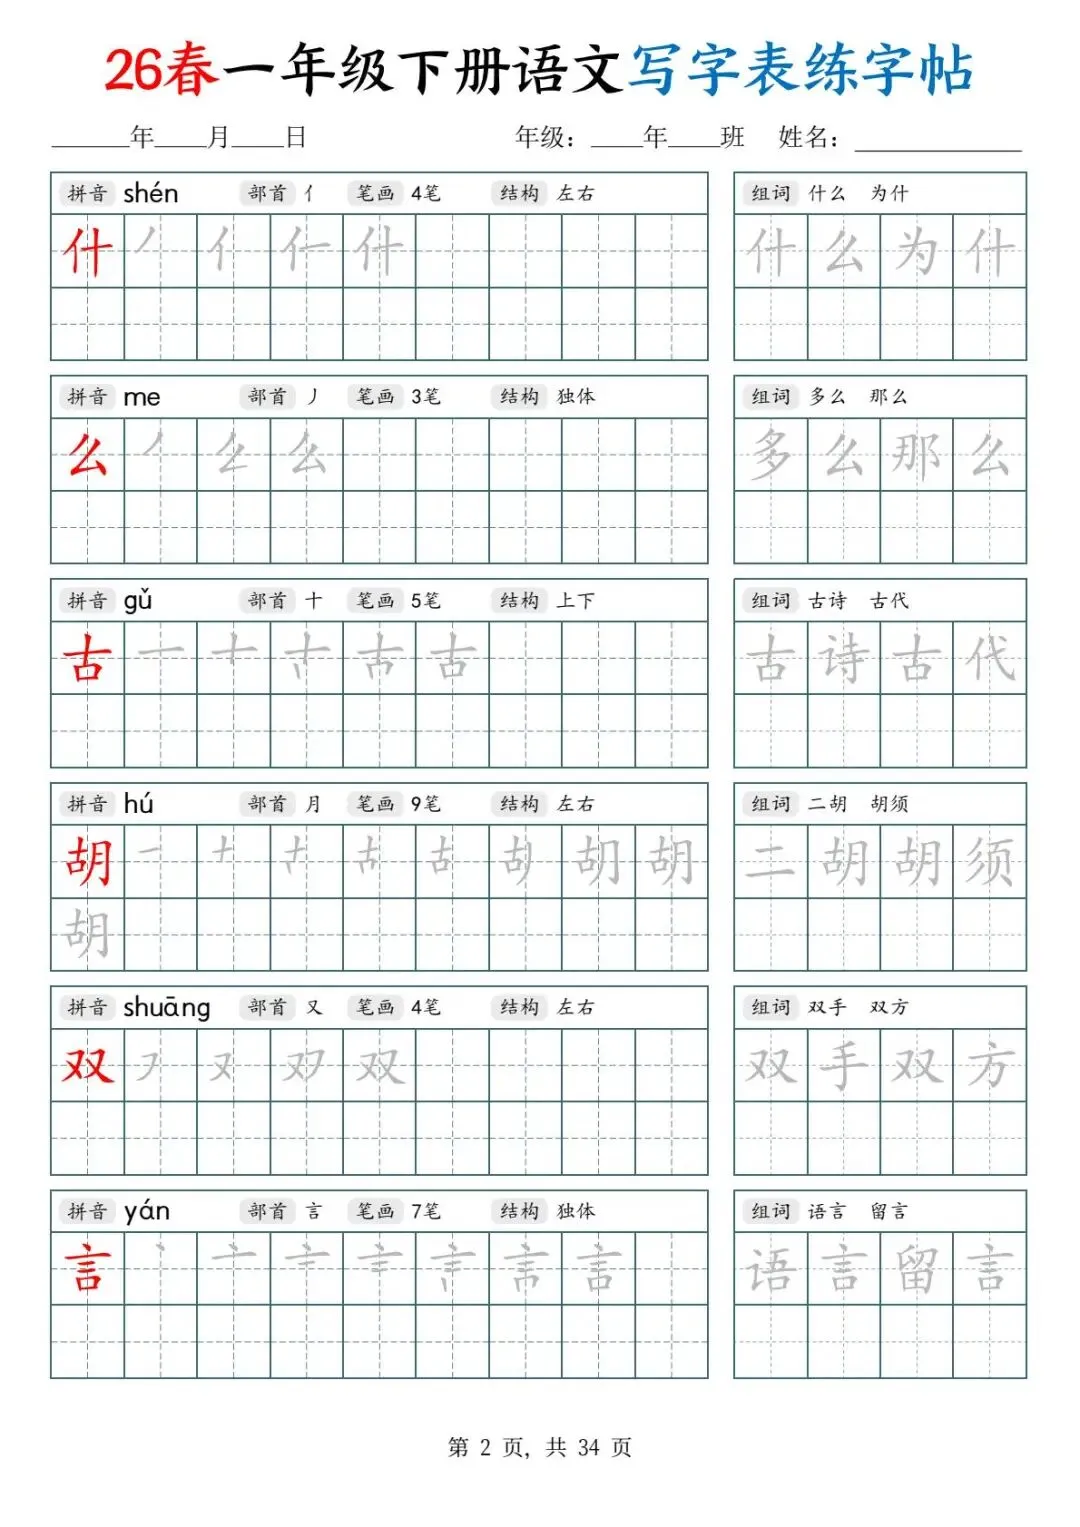 26春一年级下册语文写字表练字帖
____年____月____日 年级：____年____班 姓名：____________
拼音 shén 部首 亻 笔画 4笔 结构 左右 组词 什么 为什
什 丿 亻 仁 什 什 么 为 什
拼音 me 部首 丿 笔画 3笔 结构 独体 组词 多么 那么
么 丿 么 多 么 那 么
拼音 gǔ 部首 十 笔画 5笔 结构 上下 组词 古诗 古代
古 一 十 古 古 诗 古 代
拼音 hú 部首 月 笔画 9笔 结构 左右 组词 二胡 胡须
胡 一 十 古 胡 二 胡 胡 须
胡
拼音 shuāng 部首 又 笔画 4笔 结构 左右 组词 双手 双方
双 又 双 双 手 双 方
拼音 yán 部首 言 笔画 7笔 结构 独体 组词 语言 留言
言 丶 亠 言 语 言 留 言
第 2 页，共 34 页